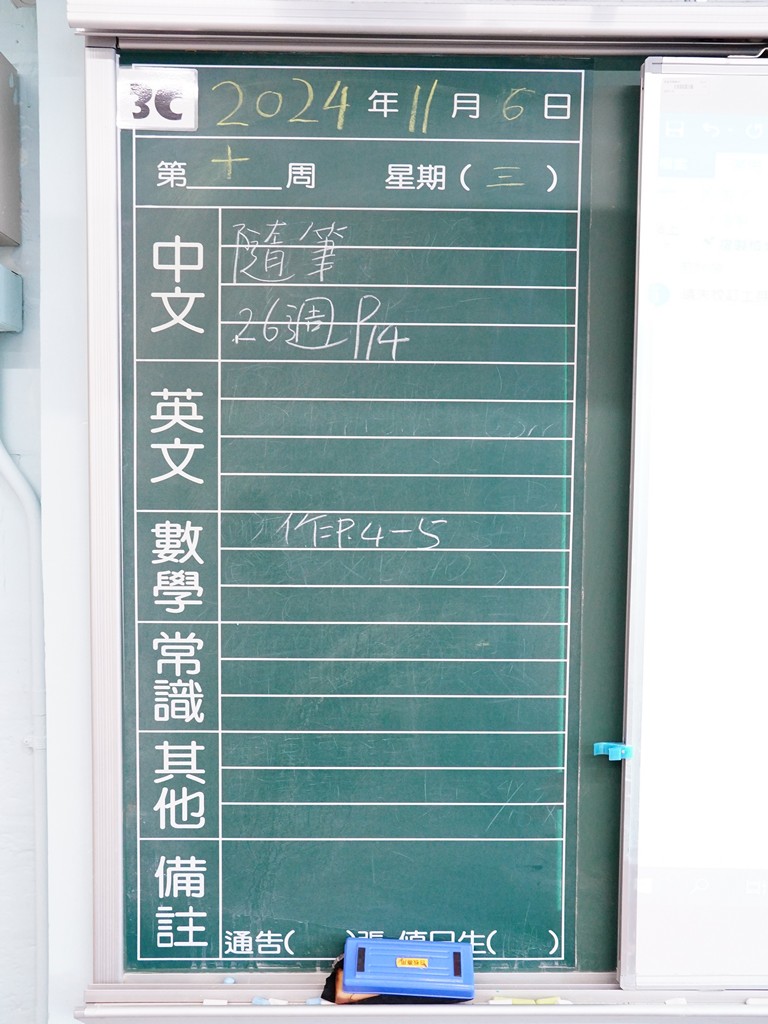 3C 2024年11月6日
第十周 星期(三)
中文
隨筆
26週 P14
英文
數學
作=P.4-5
常識
其他
備註
通告( )張 值日生( )